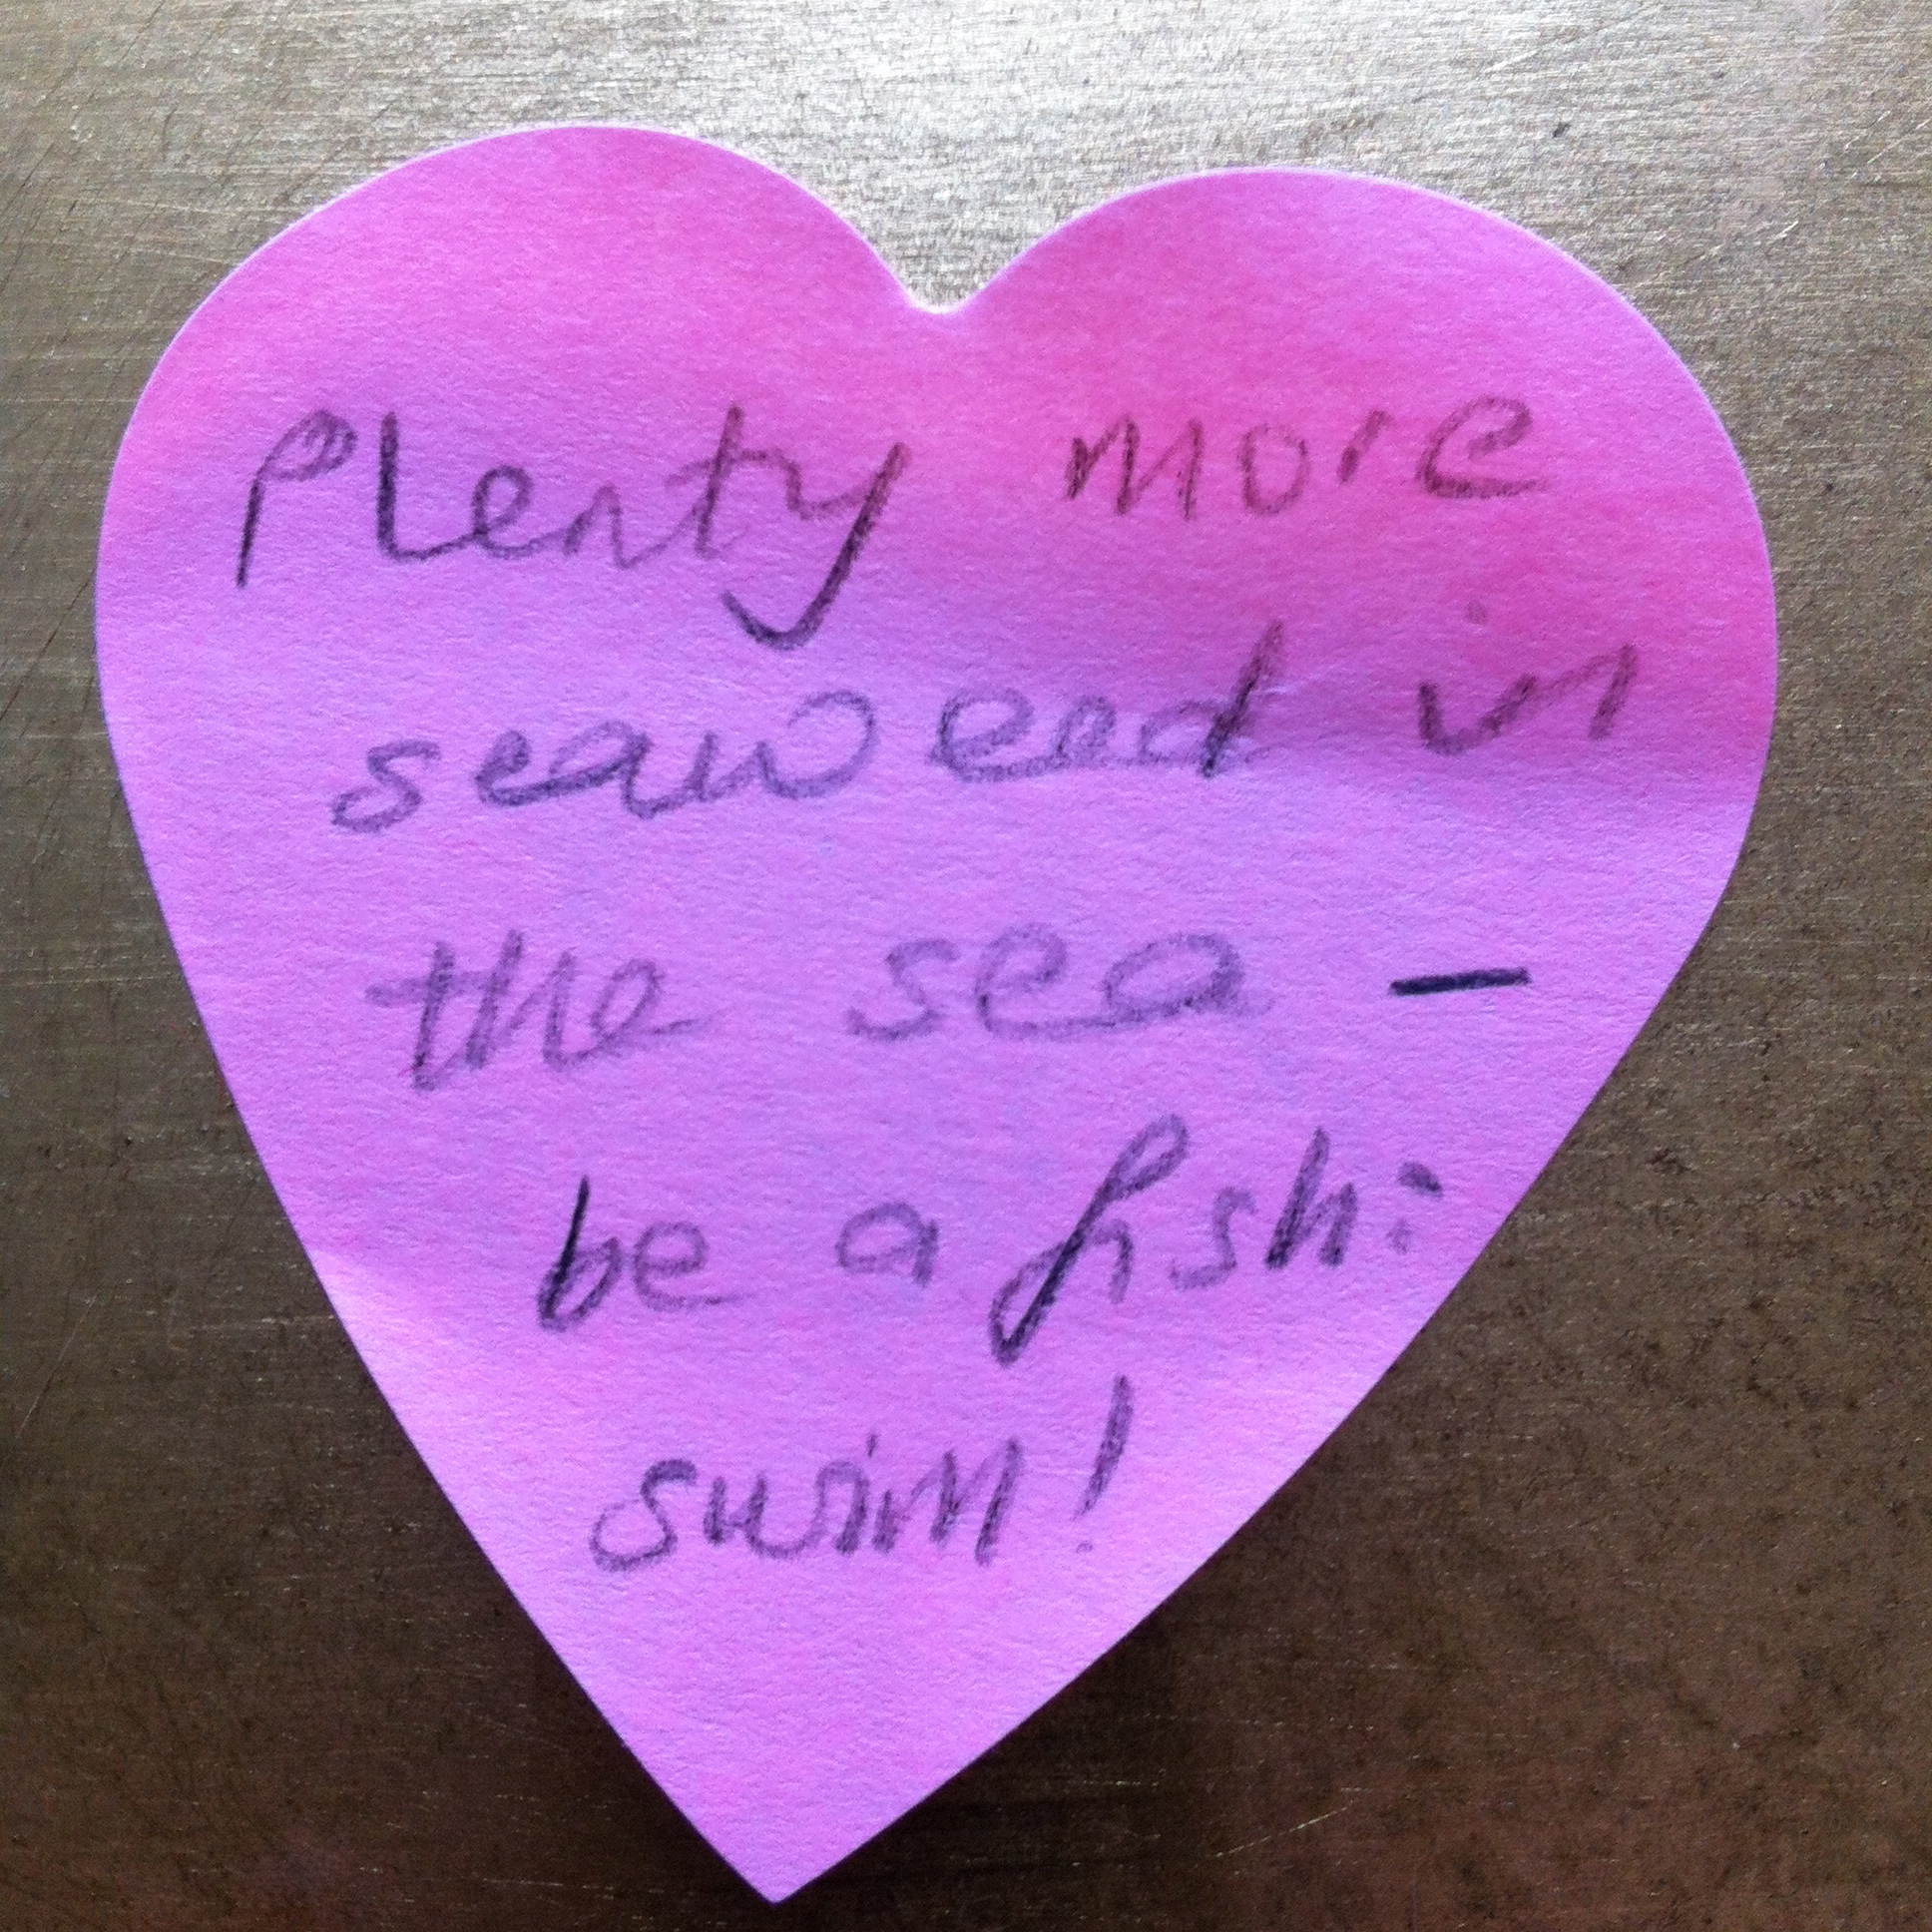 Plenty more
seaweed in
the sea –
be a fish:
swim!